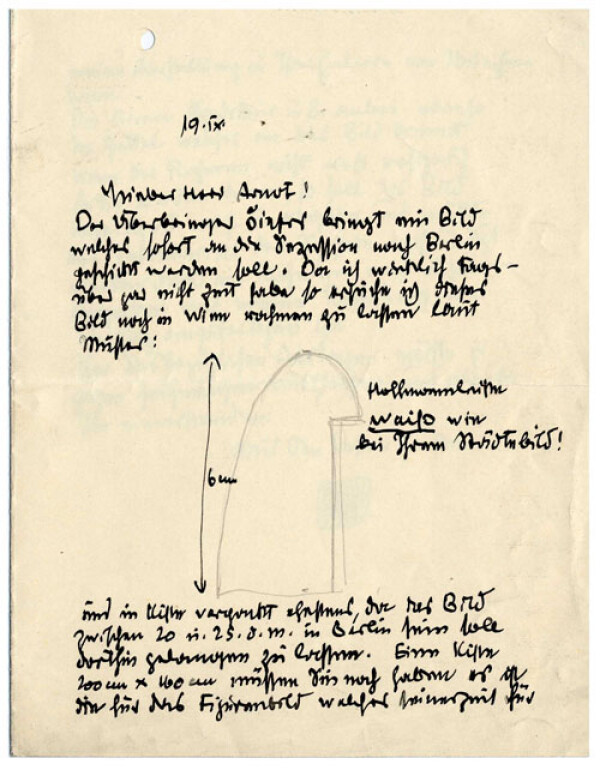 19.IX
Lieber Herr Arnot!
Der Überbringer dieses bringt ein Bild
welches sofort an die Sezession nach Berlin
geschickt werden soll. Da ich wirklich tags-
über gar nicht Zeit habe so ersuche ich dieses
Bild noch in Wien rahmen zu lassen laut
Muster!
Hollmannleiste
weiß wie
bei Ihrem Städtebild!
6 cm
und in Kiste verpackt ehestens, da das Bild
zwischen 20 u. 25. d. m. in Berlin sein soll
dorthin gelangen zu lassen. Eine Kiste
200 cm × 160 cm müssen Sie noch haben es ist
die für das Figurenbild welches seinerzeit für